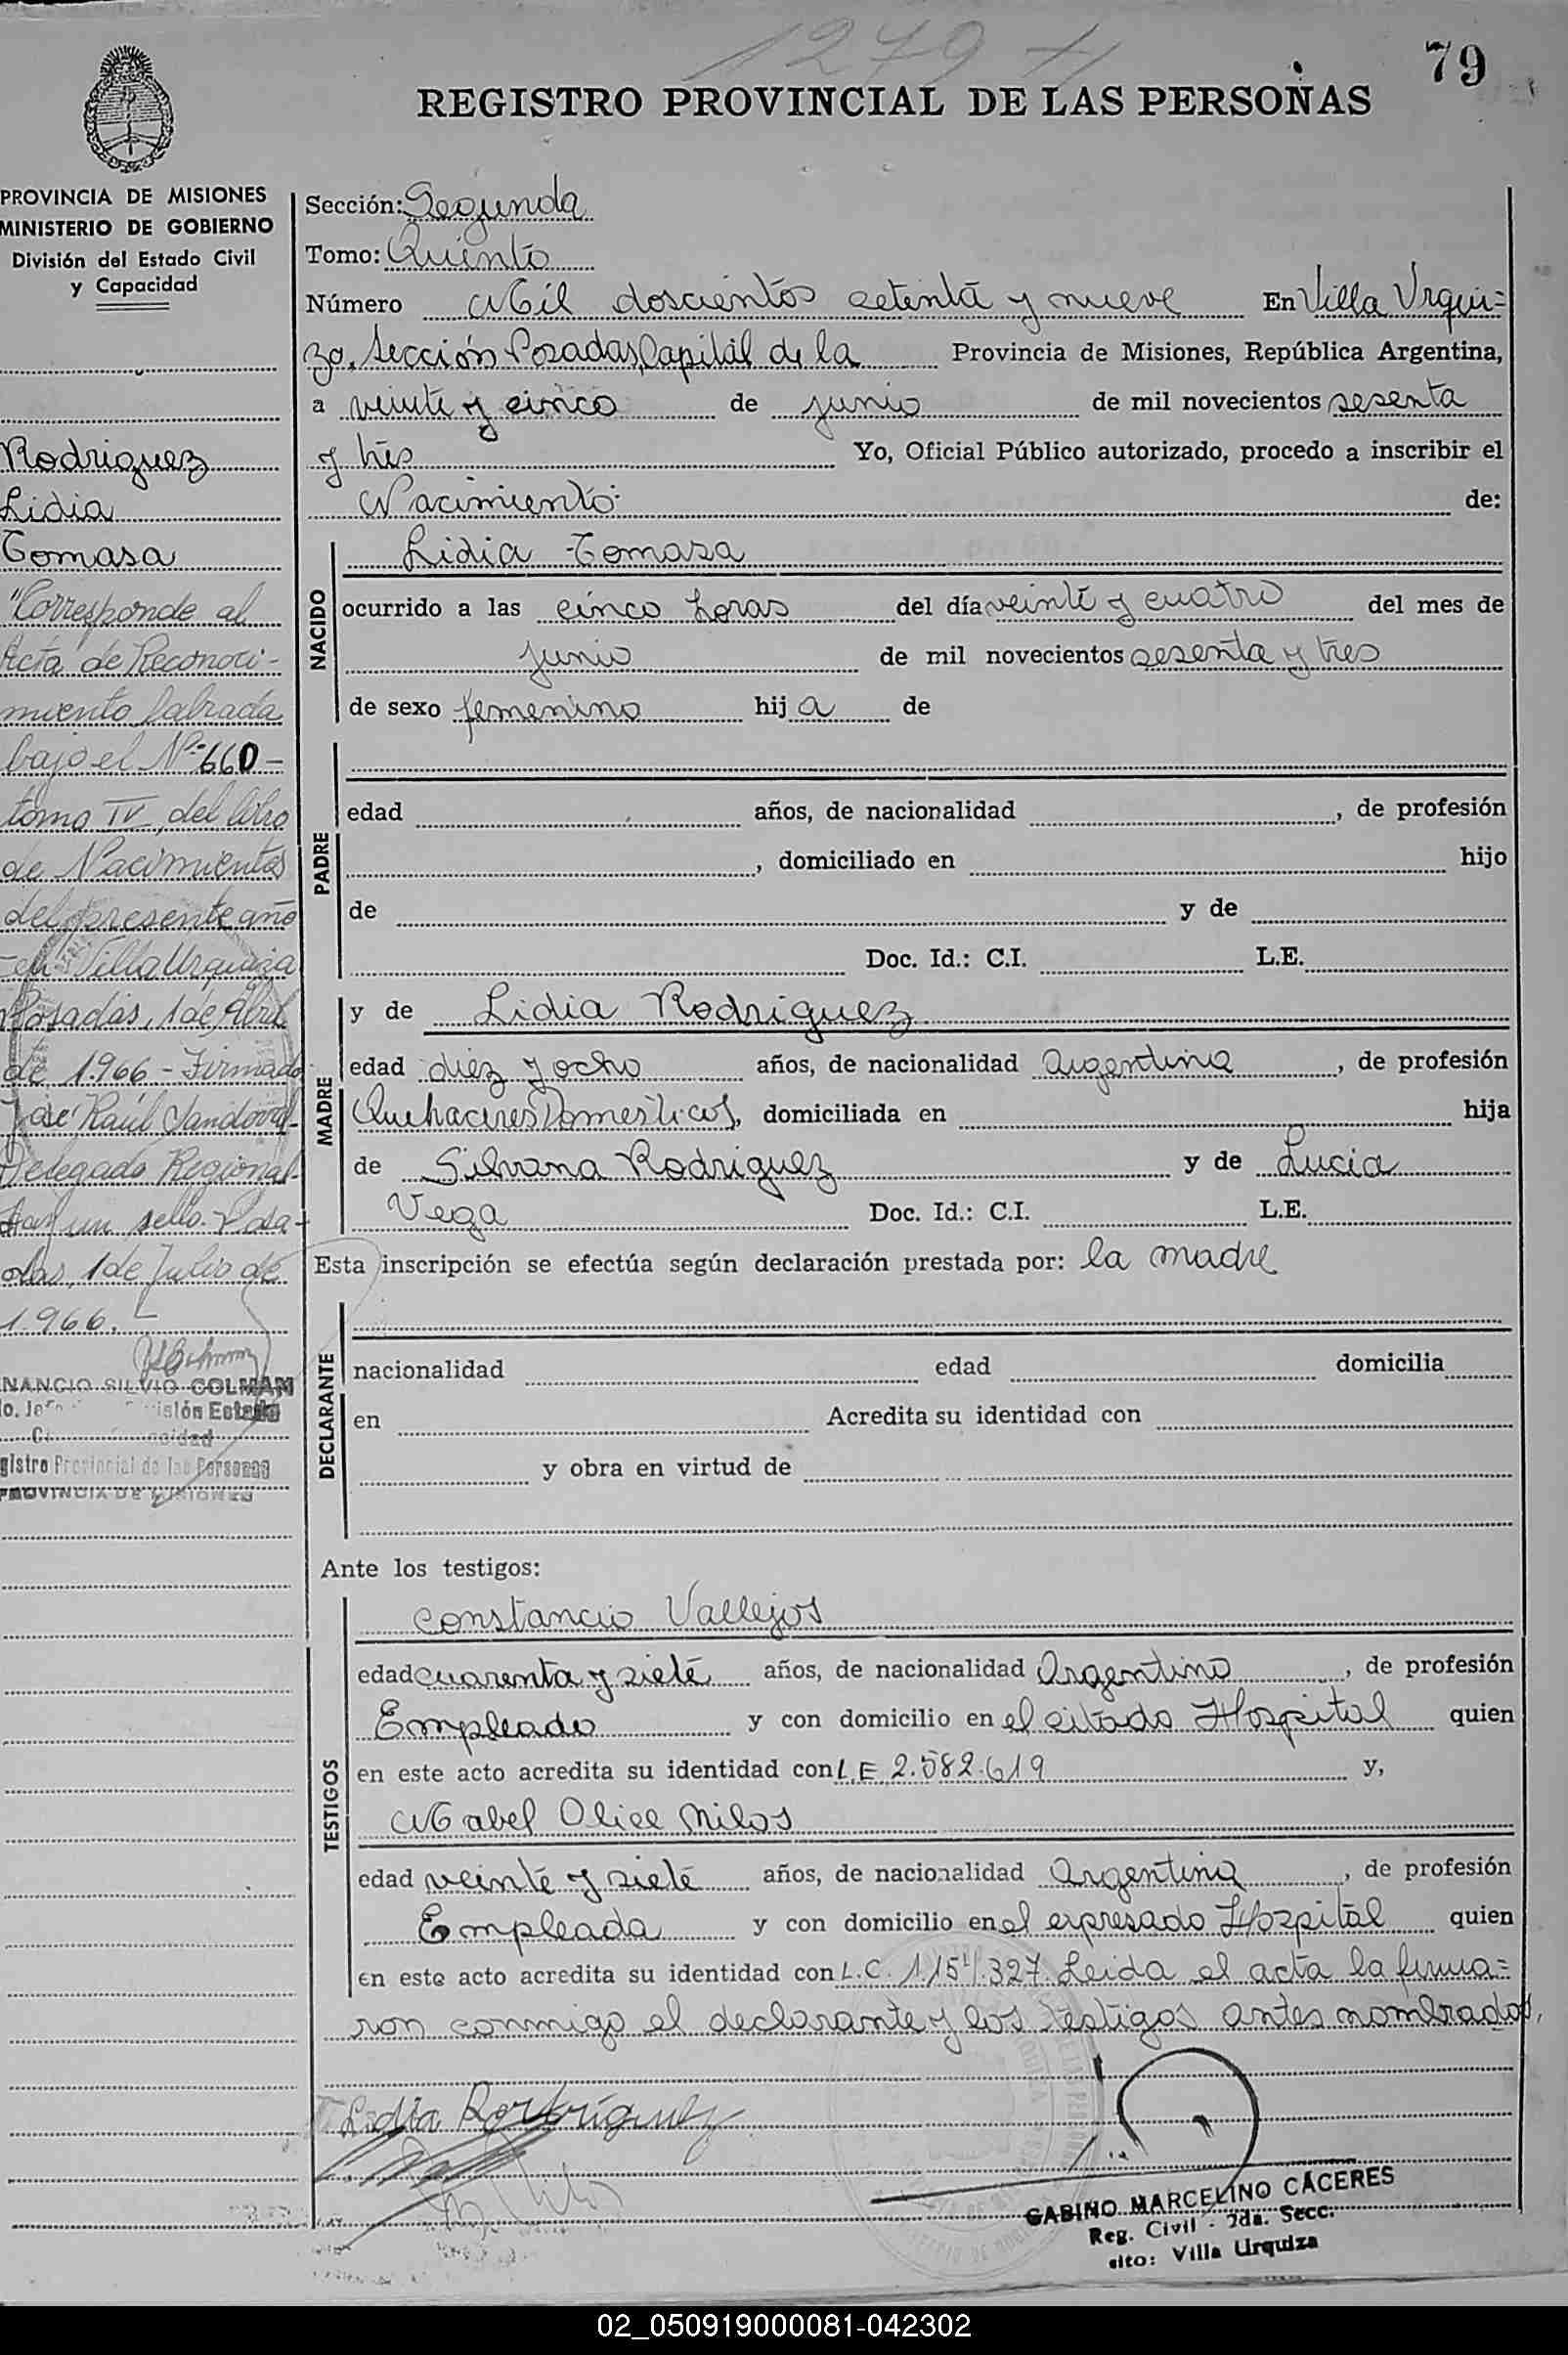 1279
79
REGISTRO PROVINCIAL DE LAS PERSONAS
PROVINCIA DE MISIONES
MINISTERIO DE GOBIERNO
División del Estado Civil
y Capacidad
Rodriguez
Lidia
Tomasa
"Corresponde al
Acta de Reconoci-
miento labrada
bajo el Nº 660-
tomo IV, del libro
de Nacimientos
del presente año
-en Villa Urquiza
Posadas, 1 de Abril
de 1.966 - Firmado
José Raúl Sandoval-
Delegado Regional-
Hay un sello. Posa-
das, 1 de Julio de
1.966.-
NANCIO SILVIO COLMAN
isión Estado
gistro Provincial de las Personas
PROVINCIA DE MISIONES
Sección: Segunda
Tomo: Quinto
Número Mil doscientos setenta y nueve En Villa Urqui=
za, Sección Posadas, Capital de la Provincia de Misiones, República Argentina,
a veinte y cinco de junio de mil novecientos sesenta
y tres Yo, Oficial Público autorizado, procedo a inscribir el
Nacimiento de:
NACIDO
Lidia Tomasa
ocurrido a las cinco horas del día veinte y cuatro del mes de
junio de mil novecientos sesenta y tres
de sexo femenino hija de
PADRE
edad años, de nacionalidad , de profesión
, domiciliado en hijo
de y de
Doc. Id.: C.I. L.E.
MADRE
y de Lidia Rodriguez
edad diez y ocho años, de nacionalidad Argentina, de profesión
Quehaceres Domesticos, domiciliada en hija
de Silvana Rodriguez y de Lucia
Vega Doc. Id.: C.I. L.E.
Esta inscripción se efectúa según declaración prestada por: la madre
DECLARANTE
nacionalidad edad domicilia
en Acredita su identidad con
y obra en virtud de
Ante los testigos:
TESTIGOS
Constancio Vallejos
edad cuarenta y siete años, de nacionalidad Argentino, de profesión
Empleado y con domicilio en el citado Hospital quien
en este acto acredita su identidad con L.E 2.582.619 y,
Mabel Milos
edad veinte y siete años, de nacionalidad Argentina, de profesión
Empleada y con domicilio en el expresado Hospital quien
en este acto acredita su identidad con L.C. Leida el acta la firma=
ron conmigo el declarante y los testigos antes nombrados,
Lidia Rodríguez
GABINO MARCELINO CÁCERES
Reg. Civil - 2da. Secc.
sito: Villa Urquiza
02_050919000081-042302